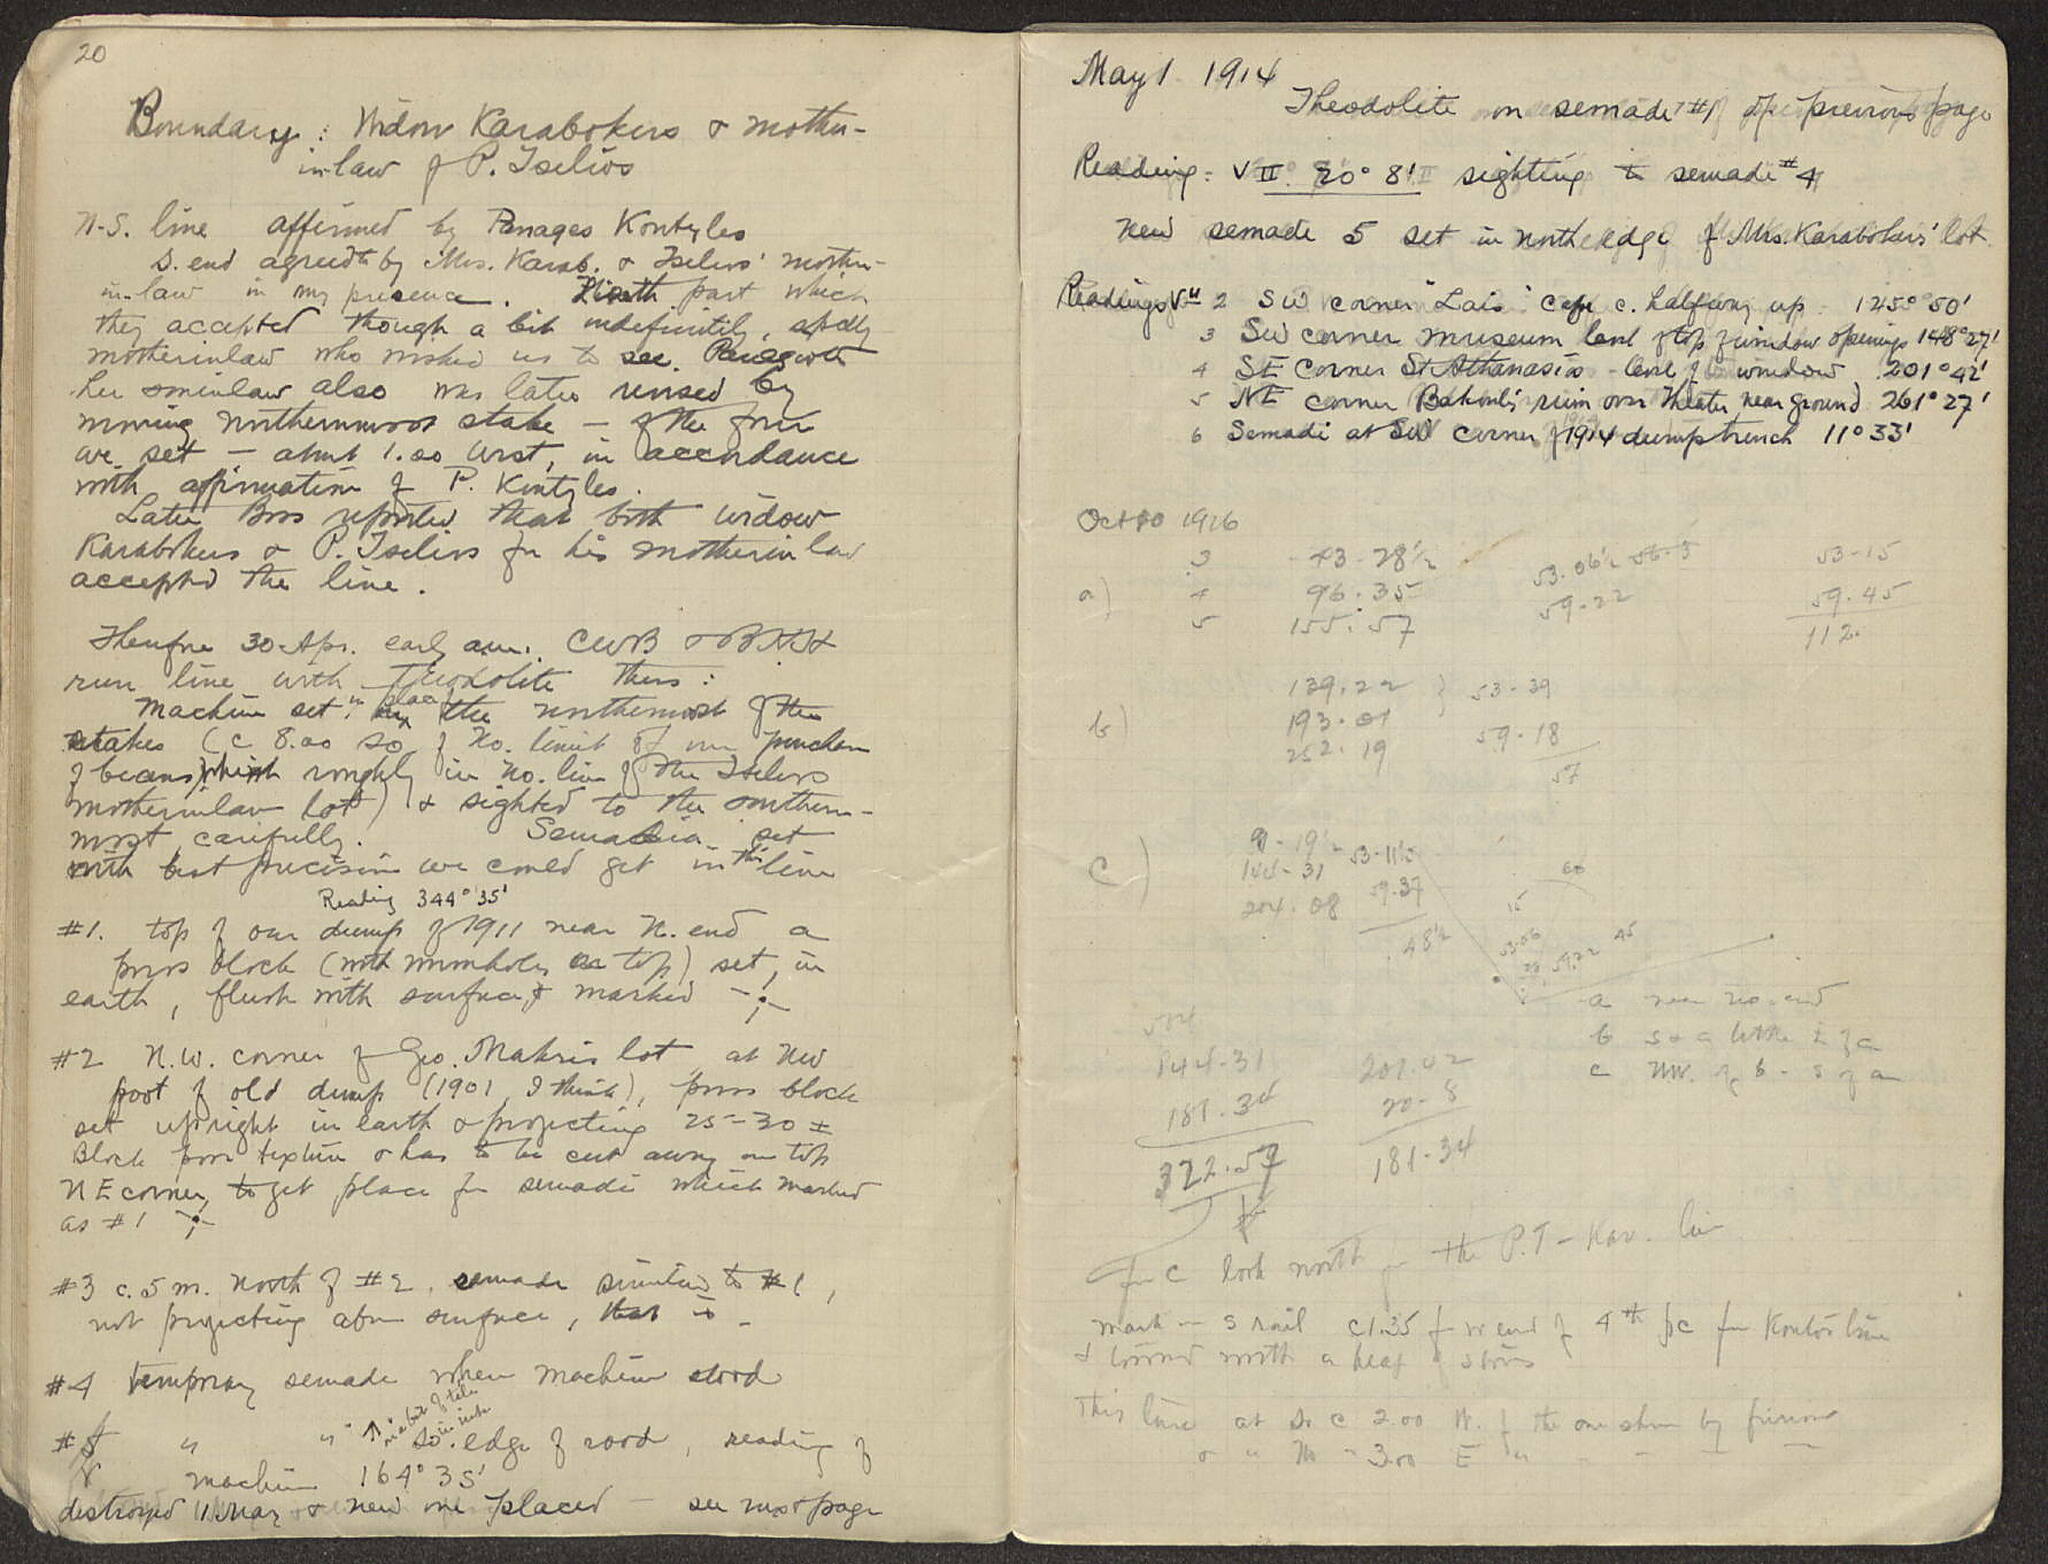 20
Boundary : Widow Karabokers & mother-
in-law of P. Tselios
N-S. line affirmed by Panages Kontyles
S. end agreed to by Mrs. Karab. & Tselios' mother-
in-law in my presence. North part which
they accepted though a bit indefinitely, espdly
motherinlaw who wished us to see Panagiotes
her soninlaw also was later revised by
moving northernmost stake — of the four
we set — about 1.00 West, in accordance
with affirmation of P. Kontyles.
Later Bros reported that both widow
Karabokers & P. Tselios for his motherinlaw
accepted the line.
Therefore 30 Apr. early a.m. CWB &
run line with Theodolite thus :
Machine set in place of the northernmost of the
stakes (c 8.00 so of No. limit of our purchase
of beans which roughly in No. line of the Tselios
motherinlaw lot) & sighted to the southern-
most carefully. Semadia set
with best precision we could get in this line
Reading 344° 35'
#1. top of our dump of 1911 near N. end a
poros block (with on top) set in
earth, flush with surface & marked
#2 N.W. corner of Geo. Makris lot at NW
foot of old dump (1901, I think), poros block
set upright in earth & projecting 25-30 ±
Block poor texture & has to be cut away on top
NE corner, to get place for semadi which marked
as #1
#3 c. 5 m. North of #2, semade similar to #1,
not projecting above surface,
#4 temporary semade where machine stood
on a bit of tile
#5 " " So. edge of road, reading of
machine 164° 35'
destroyed 11 May & new one placed — see next page
May 1 1914
Theodolite on semade #1 of previous page
Reading : V II 20° 8' sighting to semadi #4
New semade 5 set in north edge of Mrs. Karabokers' lot
Readings V II 2 SW corner "Lais" cafe c. halfway up 145° 50'
3 SW corner museum level of top of window openings 148° 27'
4 SE corner St Athanasios - level of window 201° 42'
5 NE corner ruin over theater, near ground 261° 27'
6 Semadi at SW corner of 1914 dump trench 11° 33'
Oct 1926
3 43-28½ 53.06½ 56.5 53-15
a) 4 96.35 59-22 59.45
5 155.57 112.
139.22 } 53-39
b) 193.01 59-18
252.19 57
c) 91-19½
144-31 53-11½
204.08 59.37
48½
60
15
53.06 59.22 45
a near no. end
b so a little E of a
c NW. of b - S of a
144-31 201.42
181.34 20-8
322.57 181-34
for c look north for the P.T - Kar. line
mark on S rail c 1.35 from W end of 4th pc for Kontos line
& covered with a heap of stones
This line at So c 2.00 W. of the one shown by previous
" " 3.00 E " - - -